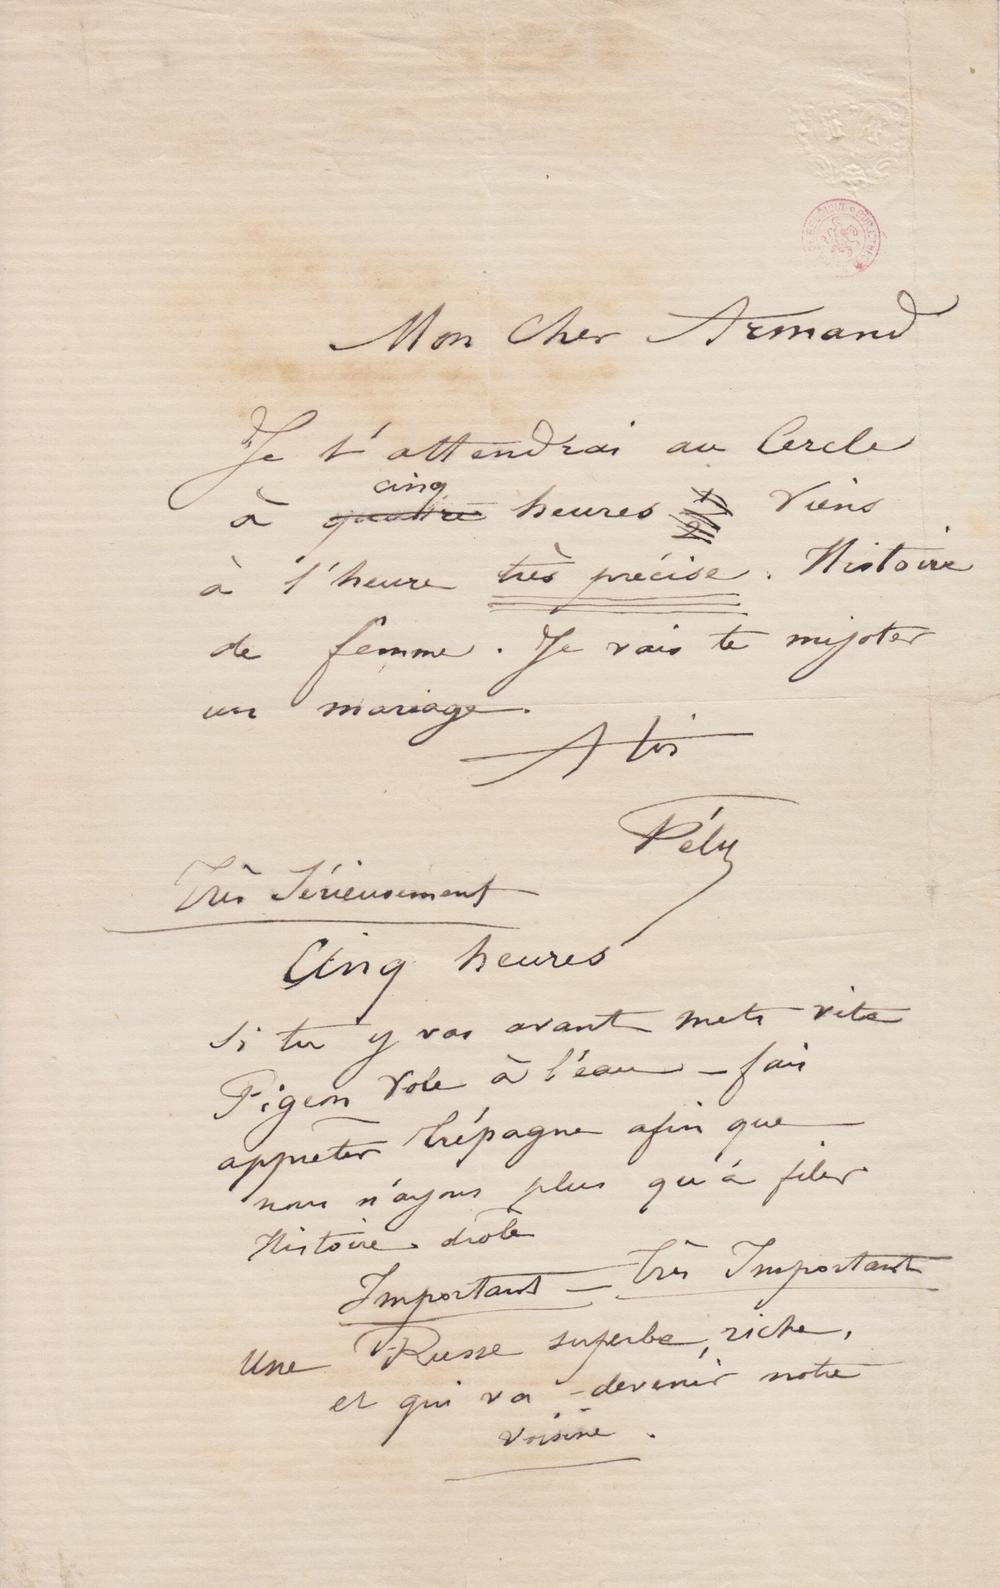 Mon Cher Armand
Je t'attendrai au Cercle
à ~~quatre~~ cinq heures Viens
à l'heure très précise. Histoire
de femme. Je vais te mijoter
un mariage.
A toi
Fély
Très Sérieusement
Cinq heures
Si tu y vas avant mets vite
Pigeon Vole à l'eau – fais
appreter Trépagne afin que
nous n'ayons plus qu'à filer
Histoire drôle
Important – Très Important
Une Russe superbe, riche,
et qui va devenir notre
voisine.